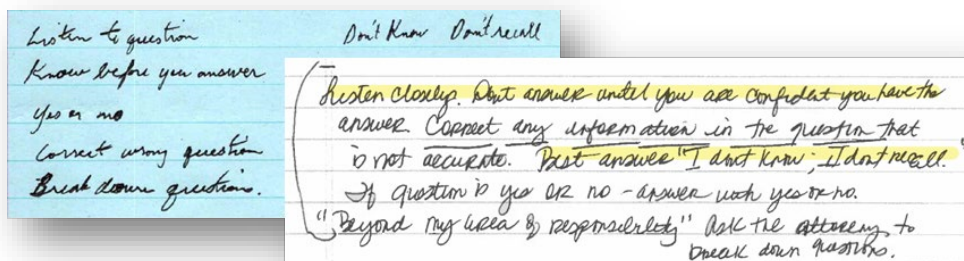 Listen to question
Don't Know Don't recall
Know before you answer
Yes or no
Correct wrong question
Break down questions.
Listen closely. Dont answer until you are confident you have the
answer. Correct any information in the question that
is not accurate. Best answer "I dont know; I dont recall."
If question is yes or no - answer with yes or no.
"Beyond my area of responsibility" Ask the attorney to
break down questions.